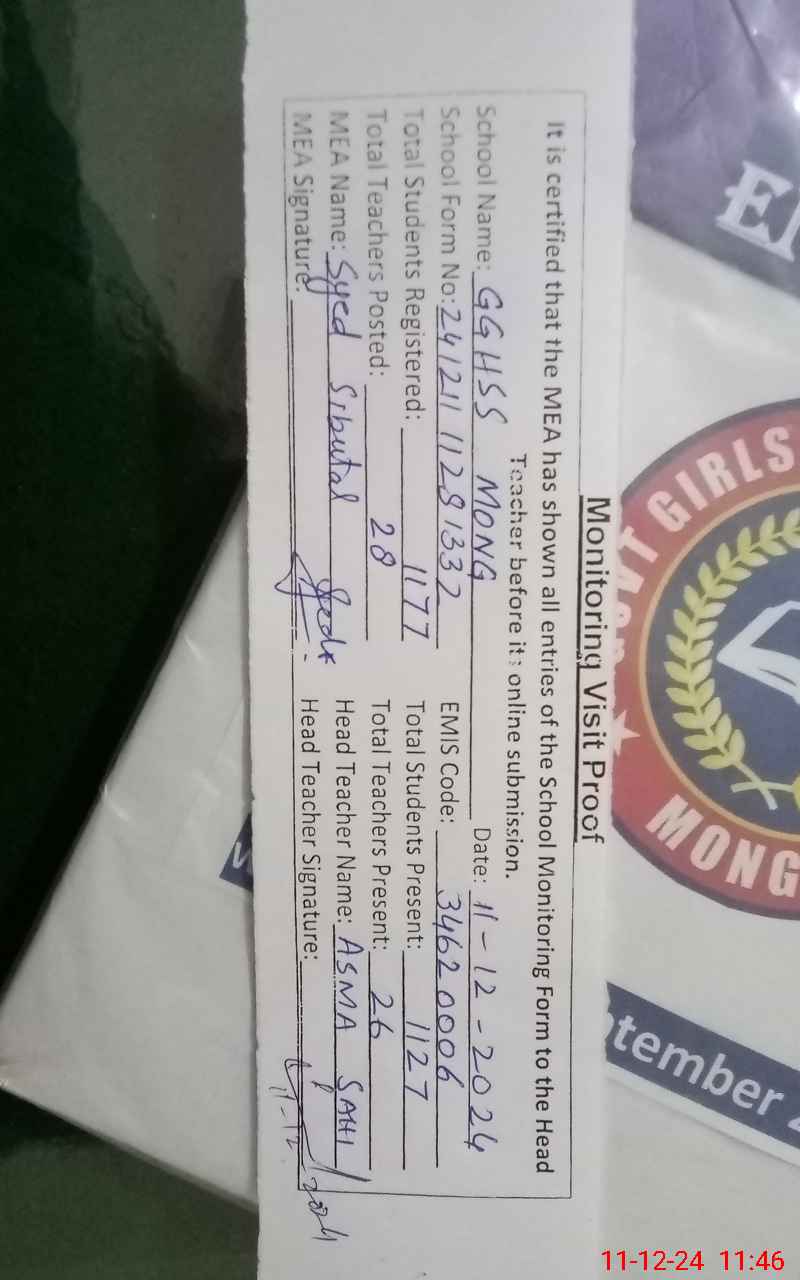 Monitoring Visit Proof
It is certified that the MEA has shown all entries of the School Monitoring Form to the Head
Teacher before its online submission.
School Name: GGHSS MONG Date: 11-12-2024
School Form No: 241211 11281332 EMIS Code: 34620006
Total Students Registered: 1177 Total Students Present: 1127
Total Teachers Posted: 28 Total Teachers Present: 26
MEA Name: Syed Head Teacher Name: ASMA SAHI
MEA Signature: Head Teacher Signature:
11-12-2024
El
GIRLS
MONG
tember
11-12-24 11:46